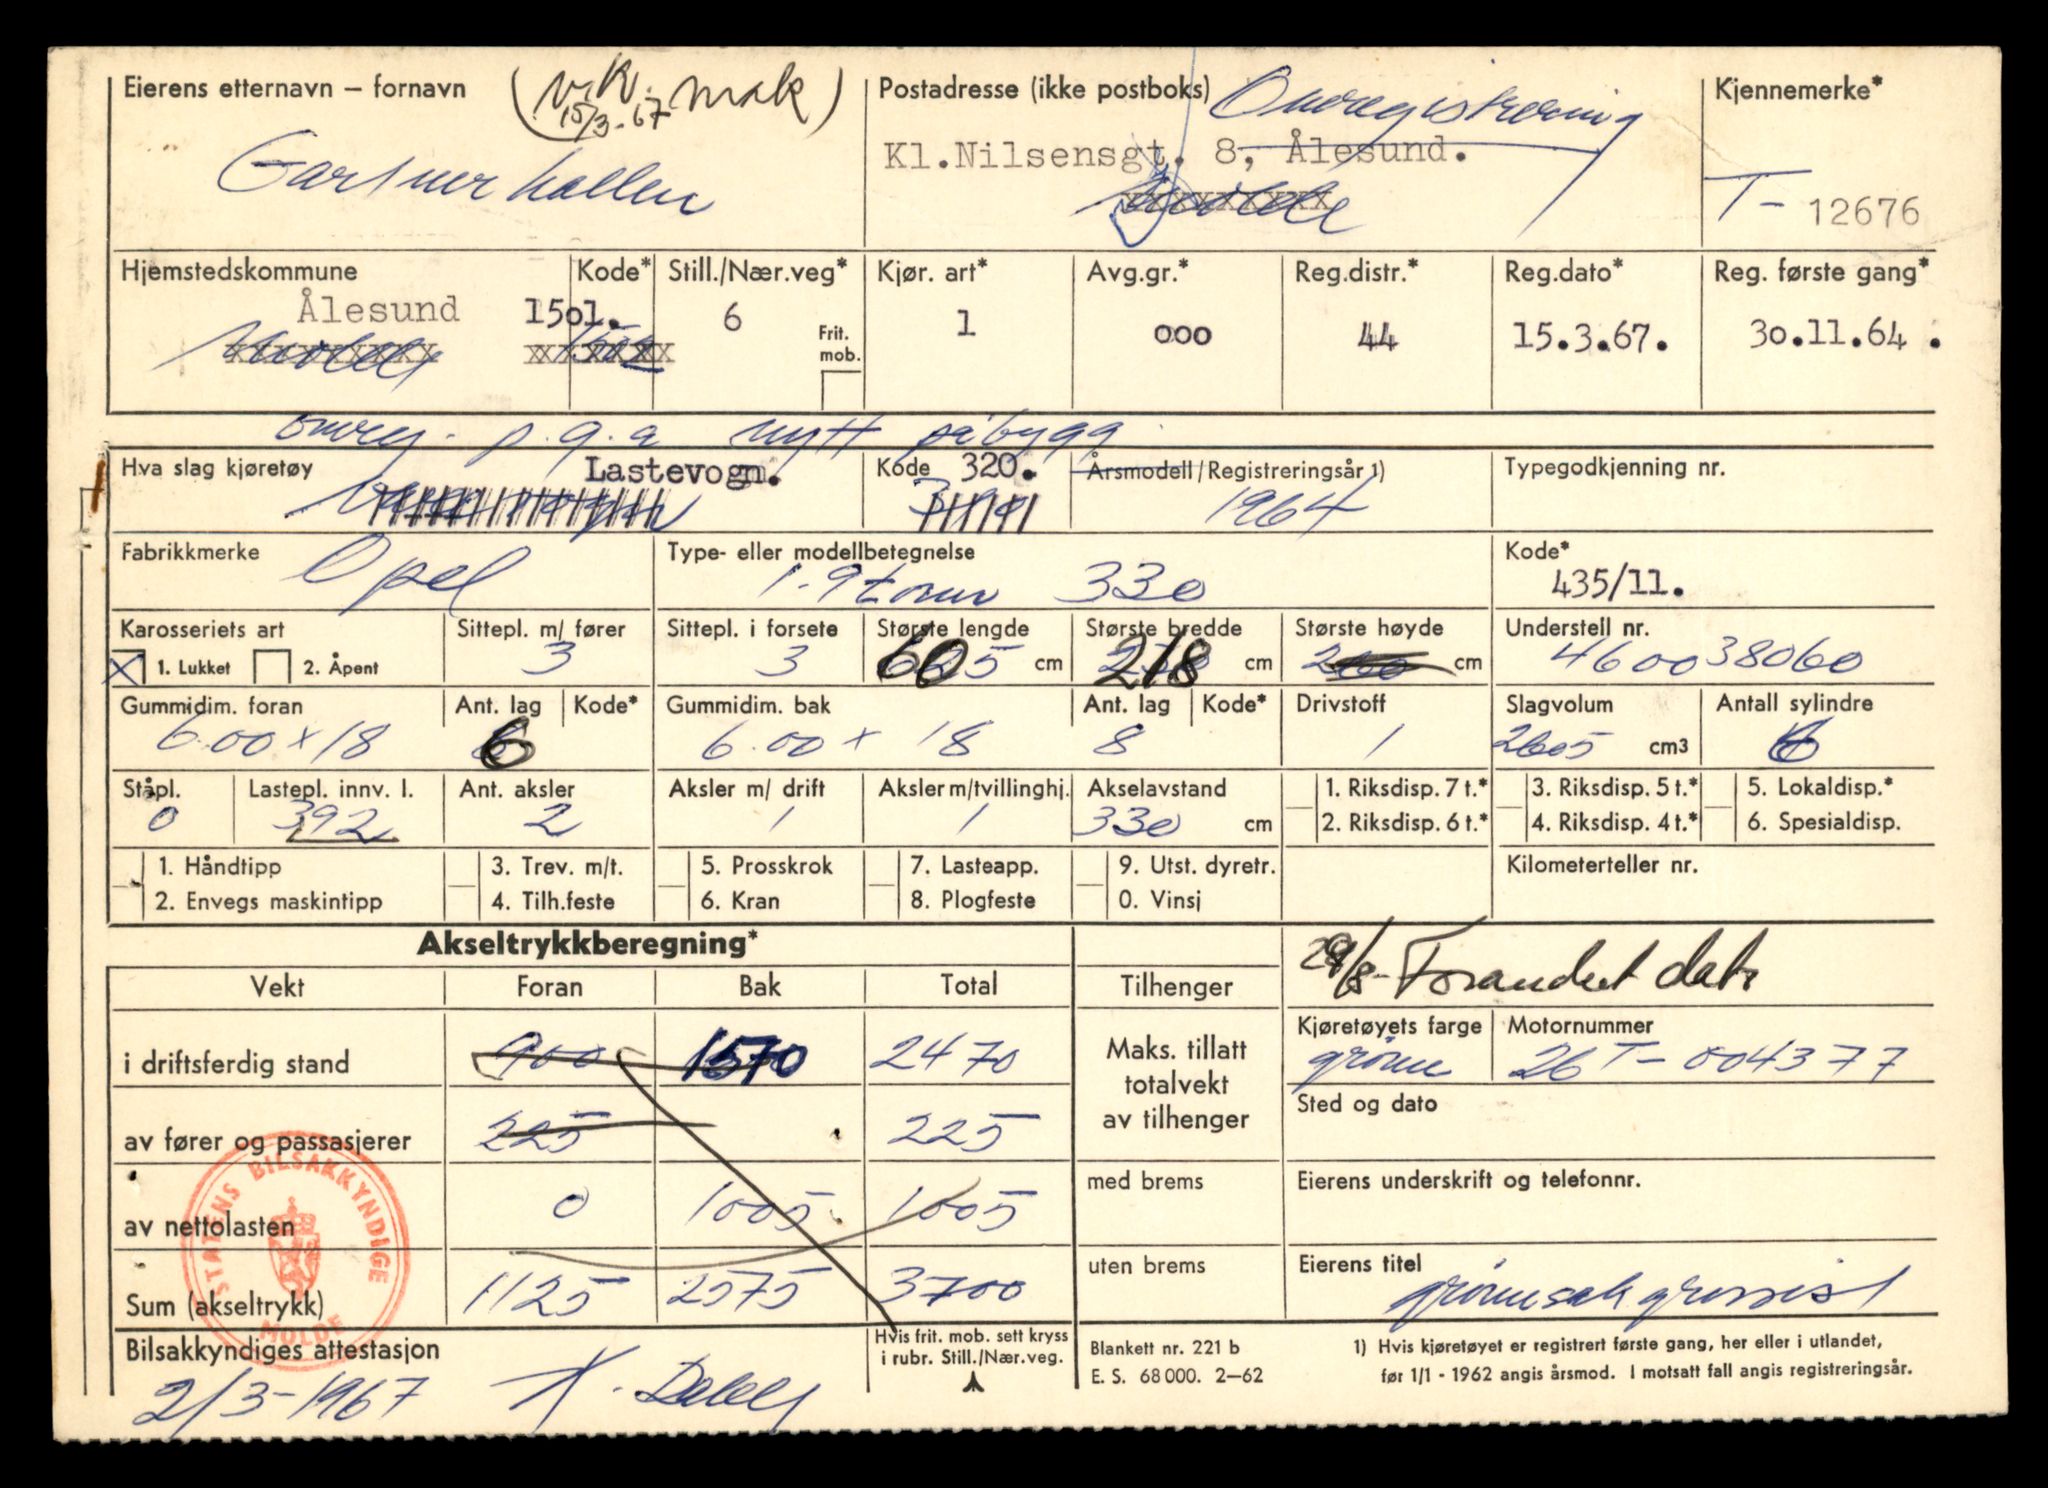 Eierens etternavn – fornavn
(v.k. mak)
15/3-67
Gartnerhallen
Postadresse (ikke postboks)
Omregistrering
Kl.Nilsensgt. 8, Ålesund.
Molde
Kjennemerke*
T- 12676
Hjemstedskommune Kode* Still./Nær.veg* Kjør. art* Avg.gr.* Reg.distr.* Reg.dato* Reg. første gang*
Ålesund 1501. 6 1 000 44 15.3.67. 30.11.64.
Frit. mob.
Molde 1502
omreg. p.g.a nytt påbygg
Hva slag kjøretøy Lastevogn. Kode 320. Årsmodell/Registreringsår 1) Typegodkjenning nr.
1964
Fabrikkmerke Type- eller modellbetegnelse Kode*
Opel 1.9 tonn 330 435/11.
Karosseriets art Sittepl. m/ fører Sittepl. i forsete Største lengde Største bredde Største høyde Understell nr.
X 1. Lukket 2. Åpent 3 3 60 cm 218 cm 200 cm 460038060
Gummidim. foran Ant. lag Kode* Gummidim. bak Ant. lag Kode* Drivstoff Slagvolum Antall sylindre
6.00 x 18 6 6.00 x 18 8 1 2605 cm3 6
Ståpl. Lastepl. innv. l. Ant. aksler Aksler m/ drift Aksler m/tvillinghj. Akselavstand 1. Riksdisp. 7 t.* 3. Riksdisp. 5 t.* 5. Lokaldisp.*
0 392 2 1 1 330 cm 2. Riksdisp. 6 t.* 4. Riksdisp. 4 t.* 6. Spesialdisp.
1. Håndtipp 3. Trev. m/t. 5. Prosskrok 7. Lasteapp. 9. Utst. dyretr. Kilometerteller nr.
2. Envegs maskintipp 4. Tilh.feste 6. Kran 8. Plogfeste 0. Vinsj
Akseltrykkberegning*
29/8- Forandret data
Vekt Foran Bak Total Tilhenger
Kjøretøyets farge Motornummer
i driftsferdig stand 900 1570 2470
Maks. tillatt totalvekt av tilhenger
grønn 26T-004377
Sted og dato
av fører og passasjerer 225 225
med brems
Eierens underskrift og telefonnr.
av nettolasten 0 1005 1005
uten brems
Eierens titel
Sum (akseltrykk) 1125 2575 3700
grønnsakgrossist
STATENS BILSAKKYNDIGE
MOLDE
Bilsakkyndiges attestasjon
2/3-1967
Hvis frit. mob. sett kryss
i rubr. Still./Nær.veg.
Blankett nr. 221 b
E. S. 68 000. 2–62
1) Hvis kjøretøyet er registrert første gang, her eller i utlandet,
før 1/1 - 1962 angis årsmod. I motsatt fall angis registreringsår.